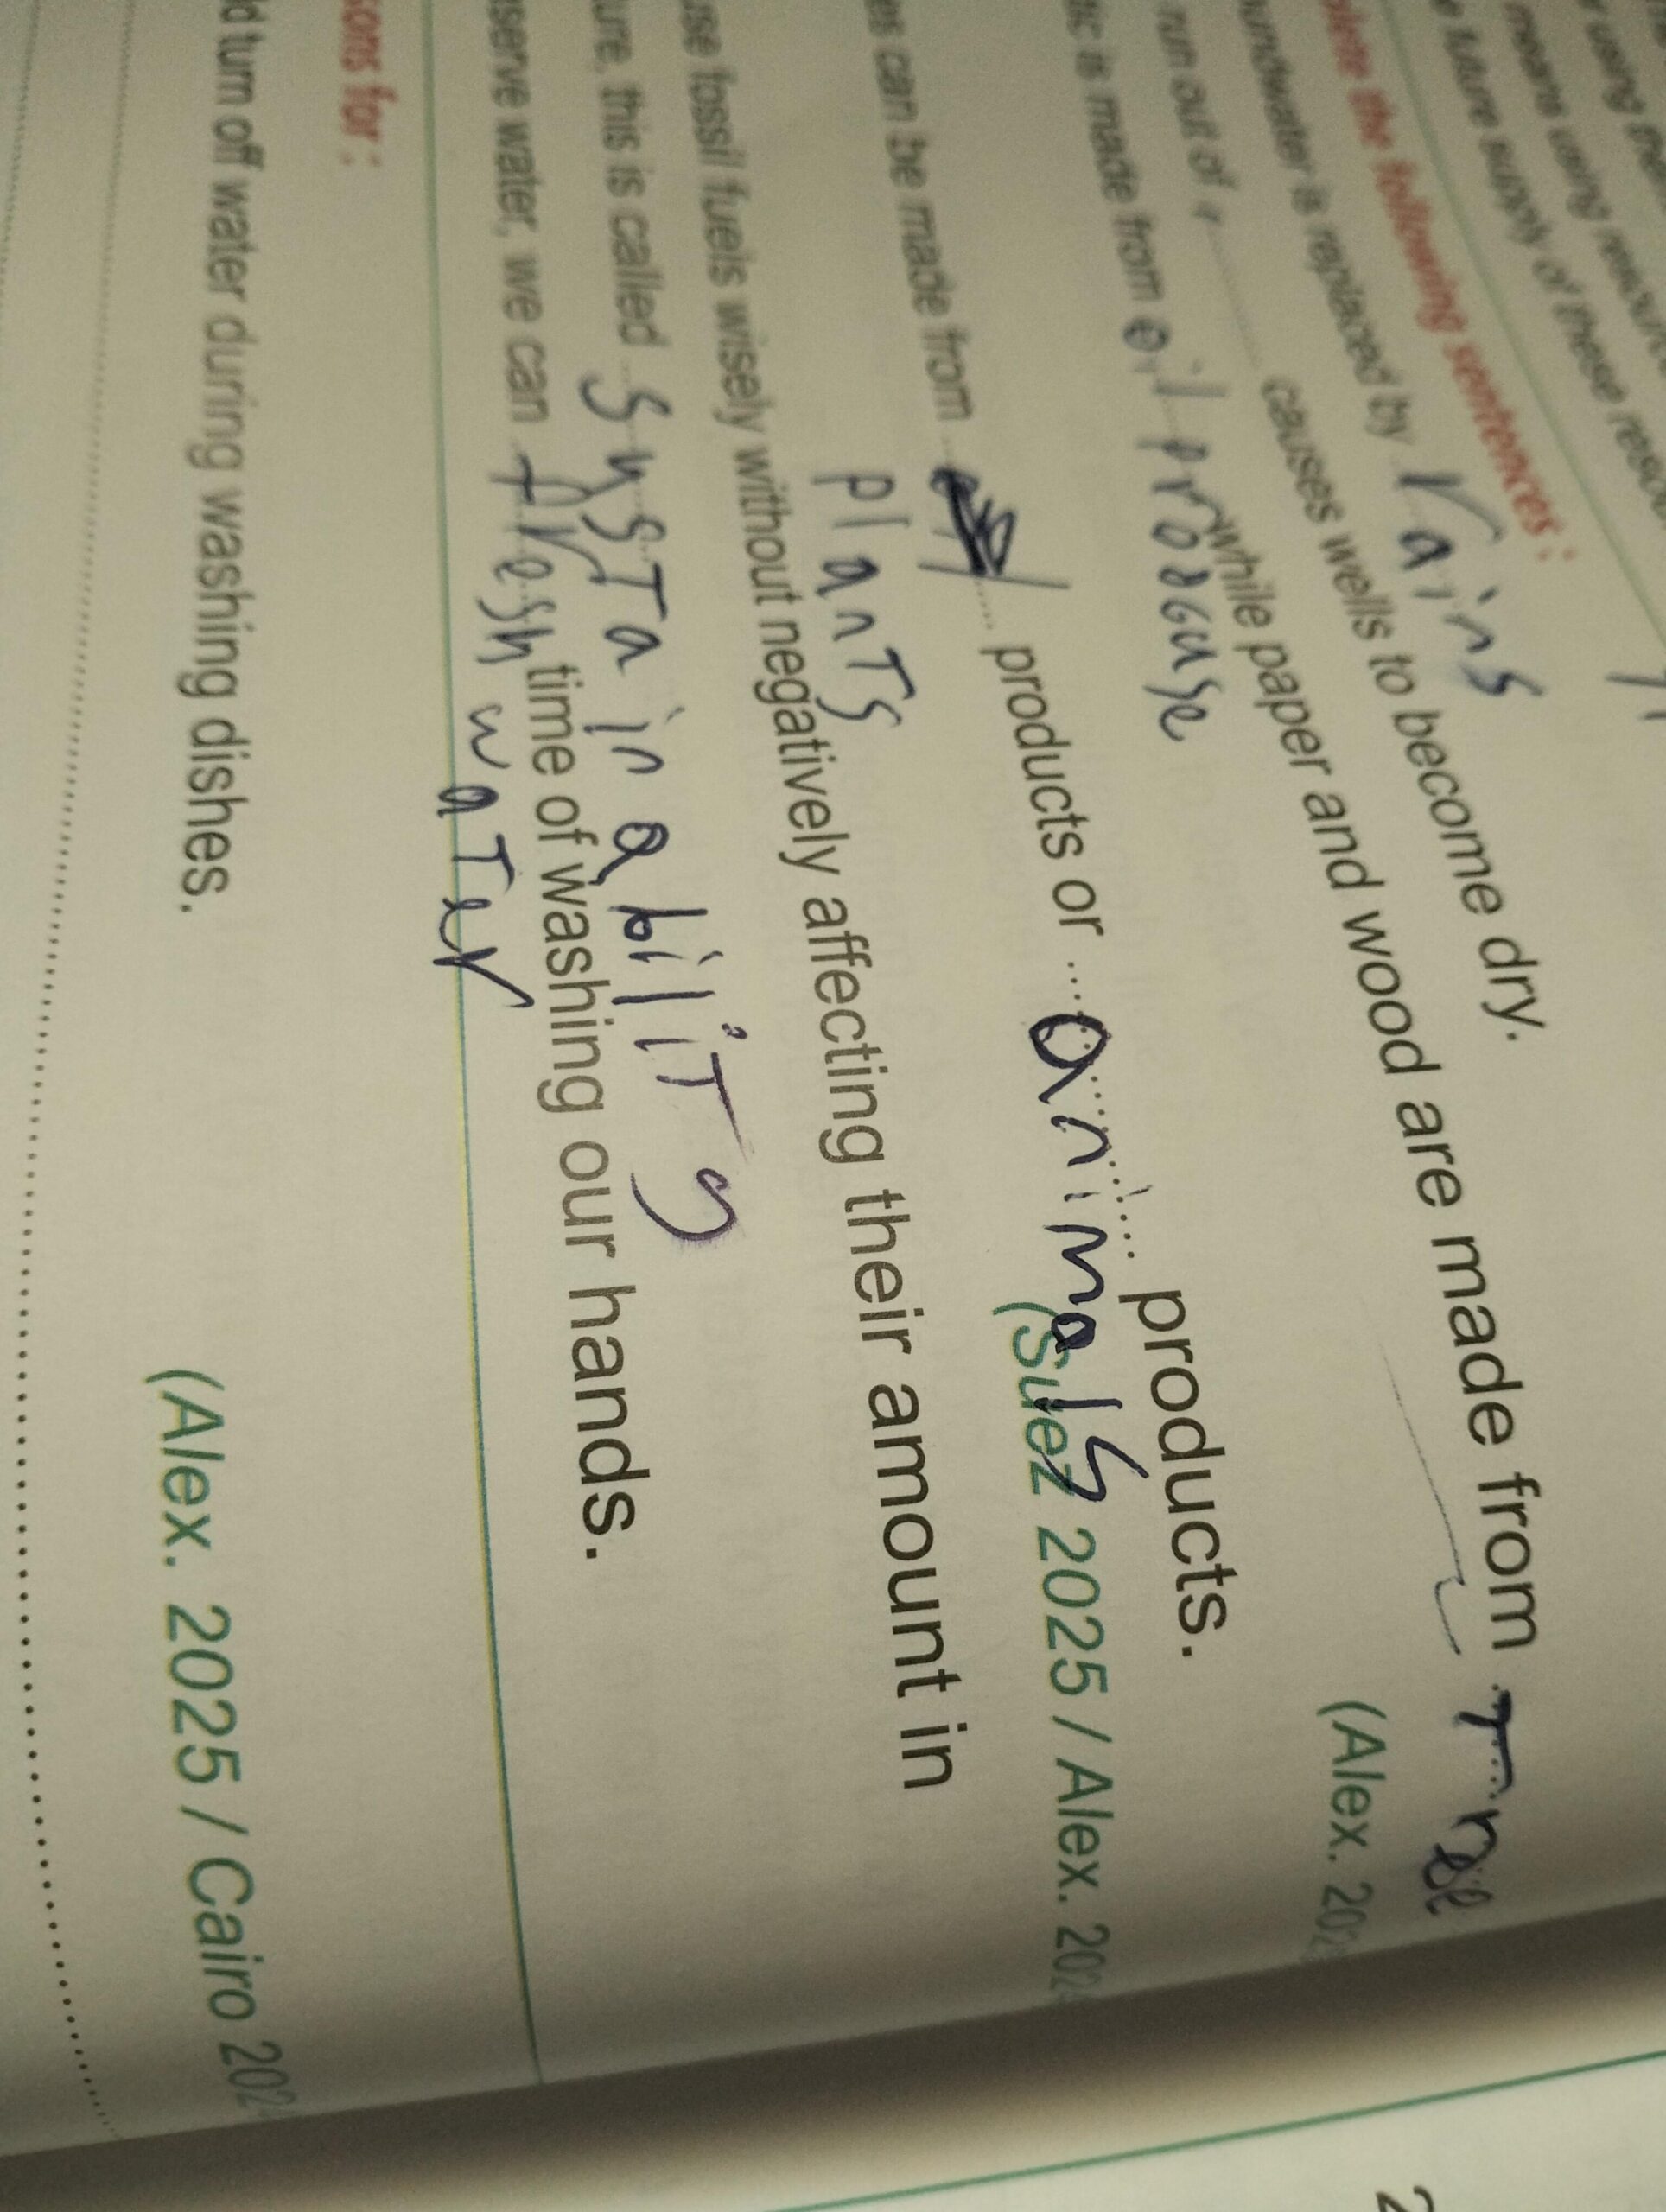 using the
means using resourc
future supply of these resou
lete the following sentences :
undwater is replaced by rains
run out of causes wells to become dry.
ic is made from oil while paper and wood are made from
products.
(Alex. 202
es can be made from products or animals
plants
(Suez 2025 / Alex. 202
use fossil fuels wisely without negatively affecting their amount in
ure, this is called sustainability
serve water, we can fresh water time of washing our hands.
sons for :
ld turn off water during washing dishes.
(Alex. 2025 / Cairo 202